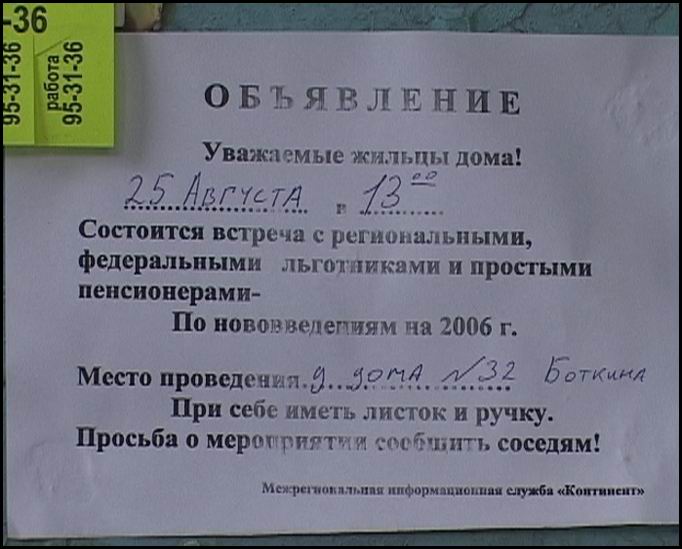 -36
95-31-36
работа
95-31-36
ОБЪЯВЛЕНИЕ
Уважаемые жильцы дома!
25 Августа в 13⁰⁰
Состоится встреча с региональными,
федеральными льготниками и простыми
пенсионерами-
По нововведениям на 2006 г.
Место проведения у дома №32 Боткина
При себе иметь листок и ручку.
Просьба о мероприятии сообщить соседям!
Межрегиональная информационная служба «Континент»